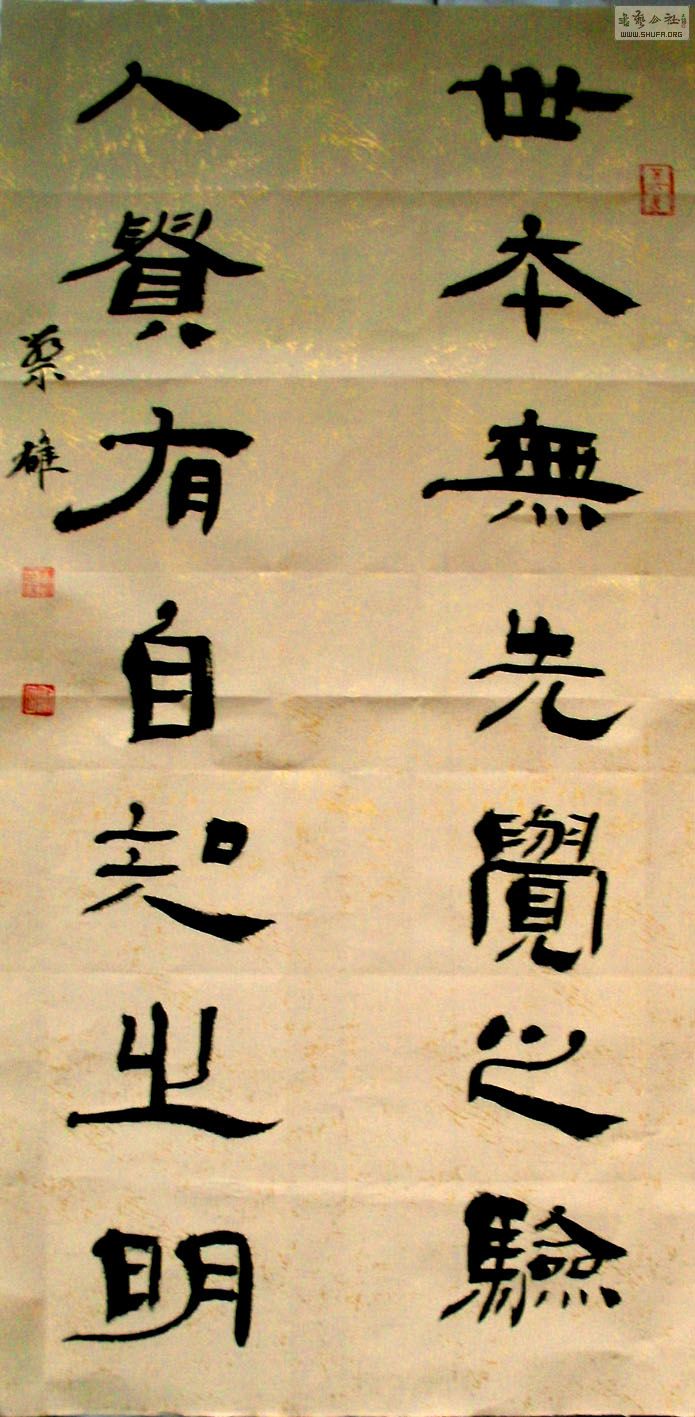 世本無先覺之驗
人貴有自知之明
蔡雄
書藝公社
WWW.SHUFA.ORG